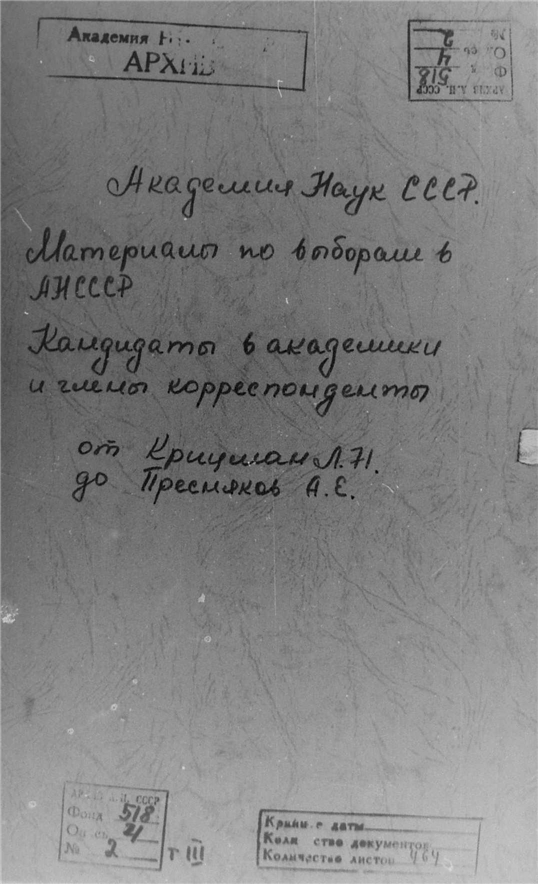 Академия Н
АРХИВ
АРХИВ А.Н. СССР
Ф. 518
Оп. 4
№ 2
Академия Наук СССР.
Материалы по выборам в
АНСССР
Кандидаты в академики
и члены корреспонденты
от Крицман Л.Н.
до Пресняков А.Е.
АРХИВ А.Н. СССР
Фонд 518
Опись 4
№ 2 т III
Крайн е даты
Коли ство документов
Количество листов 464